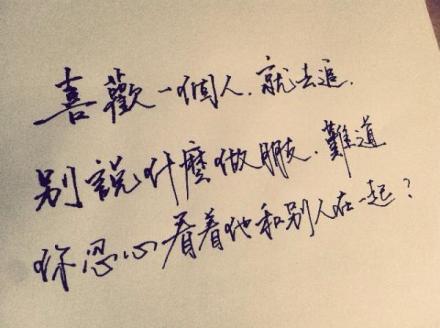 喜歡一個人.就去追.
别說什麼做朋友.難道
你忍心看着他和别人在一起?